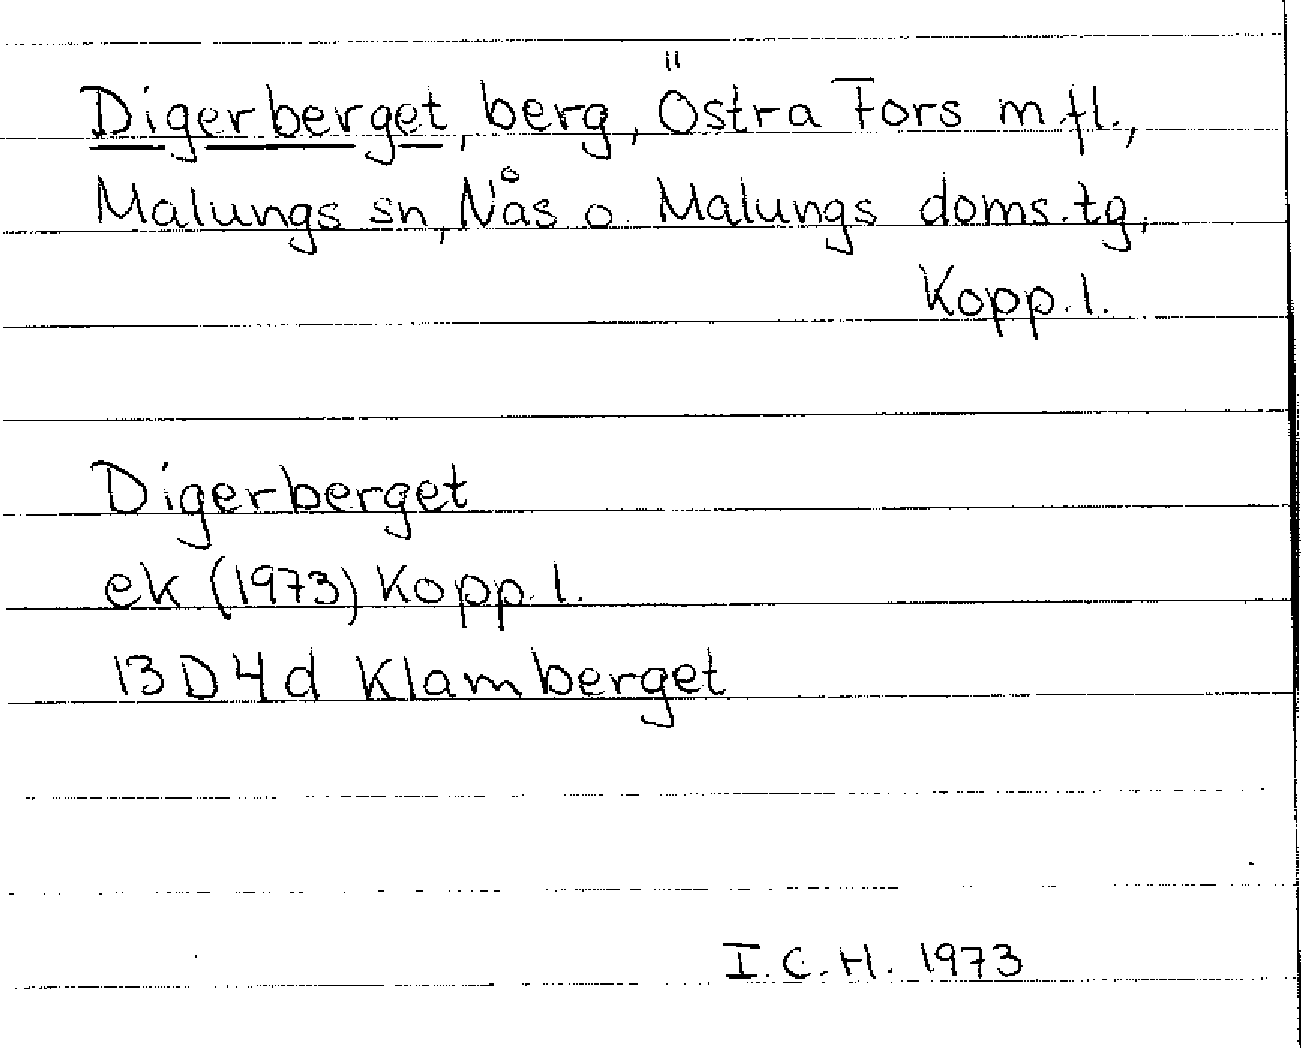 Digerberget, berg, Östra Fors m fl.,
Malungs sn, Nås o. Malungs doms.tg,
Kopp.l.
Digerberget
ek (1973) Kopp.l.
13D4d Klamberget
I.C.H. 1973